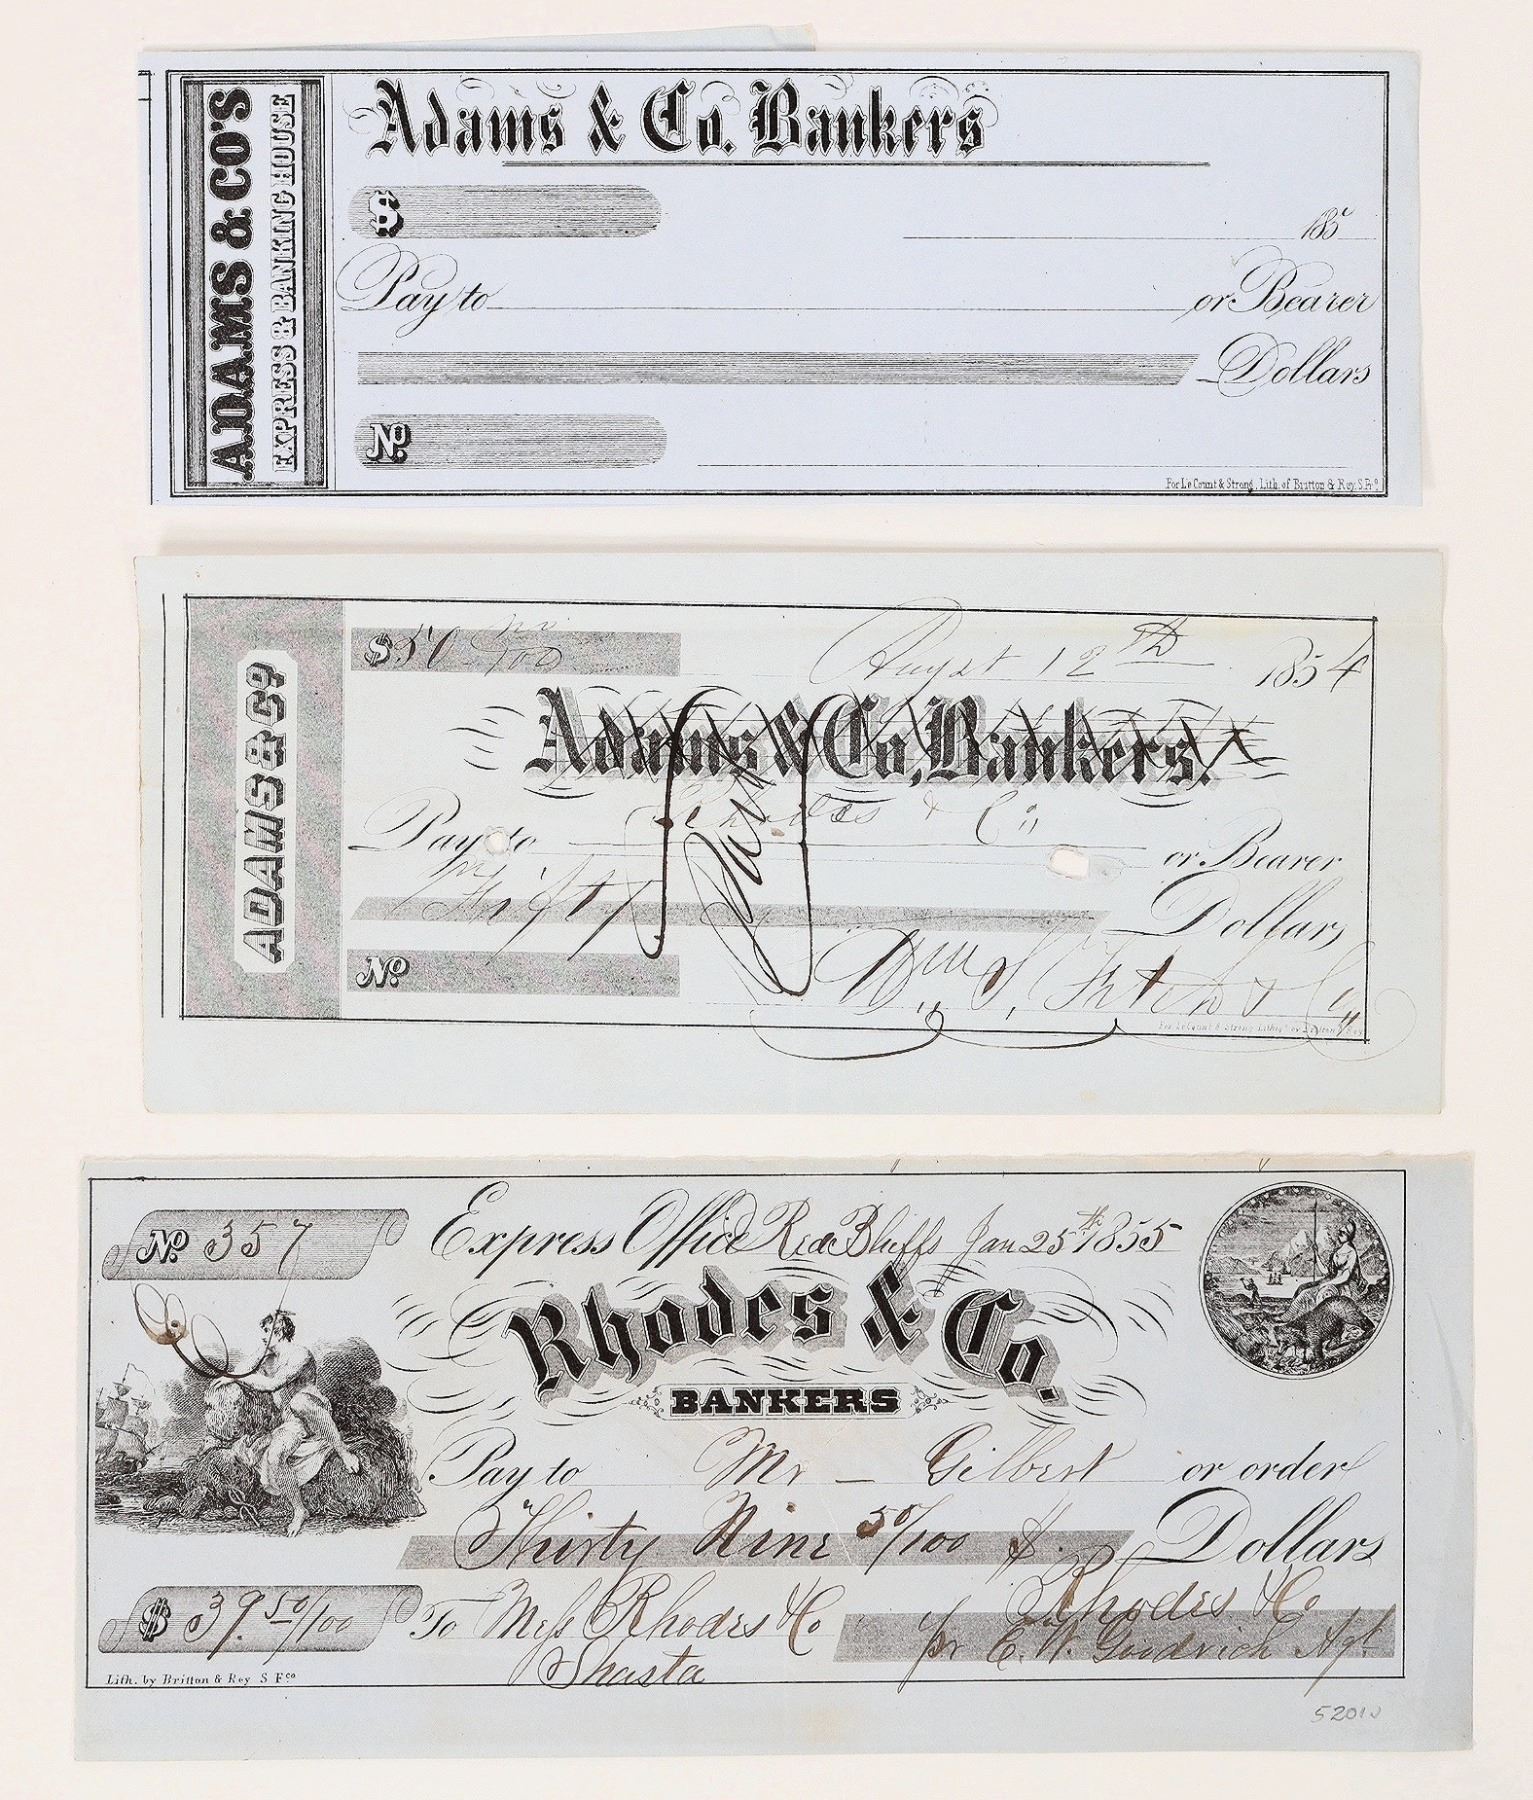 ADAMS & CO'S
EXPRESS & BANKING HOUSE
Adams & Co. Bankers
$
185
Pay to or Bearer
Dollars
No.
For Le Count & Strong, Lith. of Britton & Rey. S. Fco.
ADAMS & Co
$50 no/100 August 12th 1854
Adams & Co, Bankers.
Pay to Rhodes & Co or Bearer
Paid
Fifty Dollars
No.
Wm. S. & Co
No 357
Express Office Red Bluffs Jan 25th 1855
Rhodes & Co.
BANKERS
Pay to Mr — Gilbert or order
Thirty Nine 50/100 $ Dollars
$ 39 50/100
To Mess Rhodes & Co
Shasta
Rhodes & Co
pr E. W. Goodrich Agt
Lith. by Britton & Rey S Fco
5201